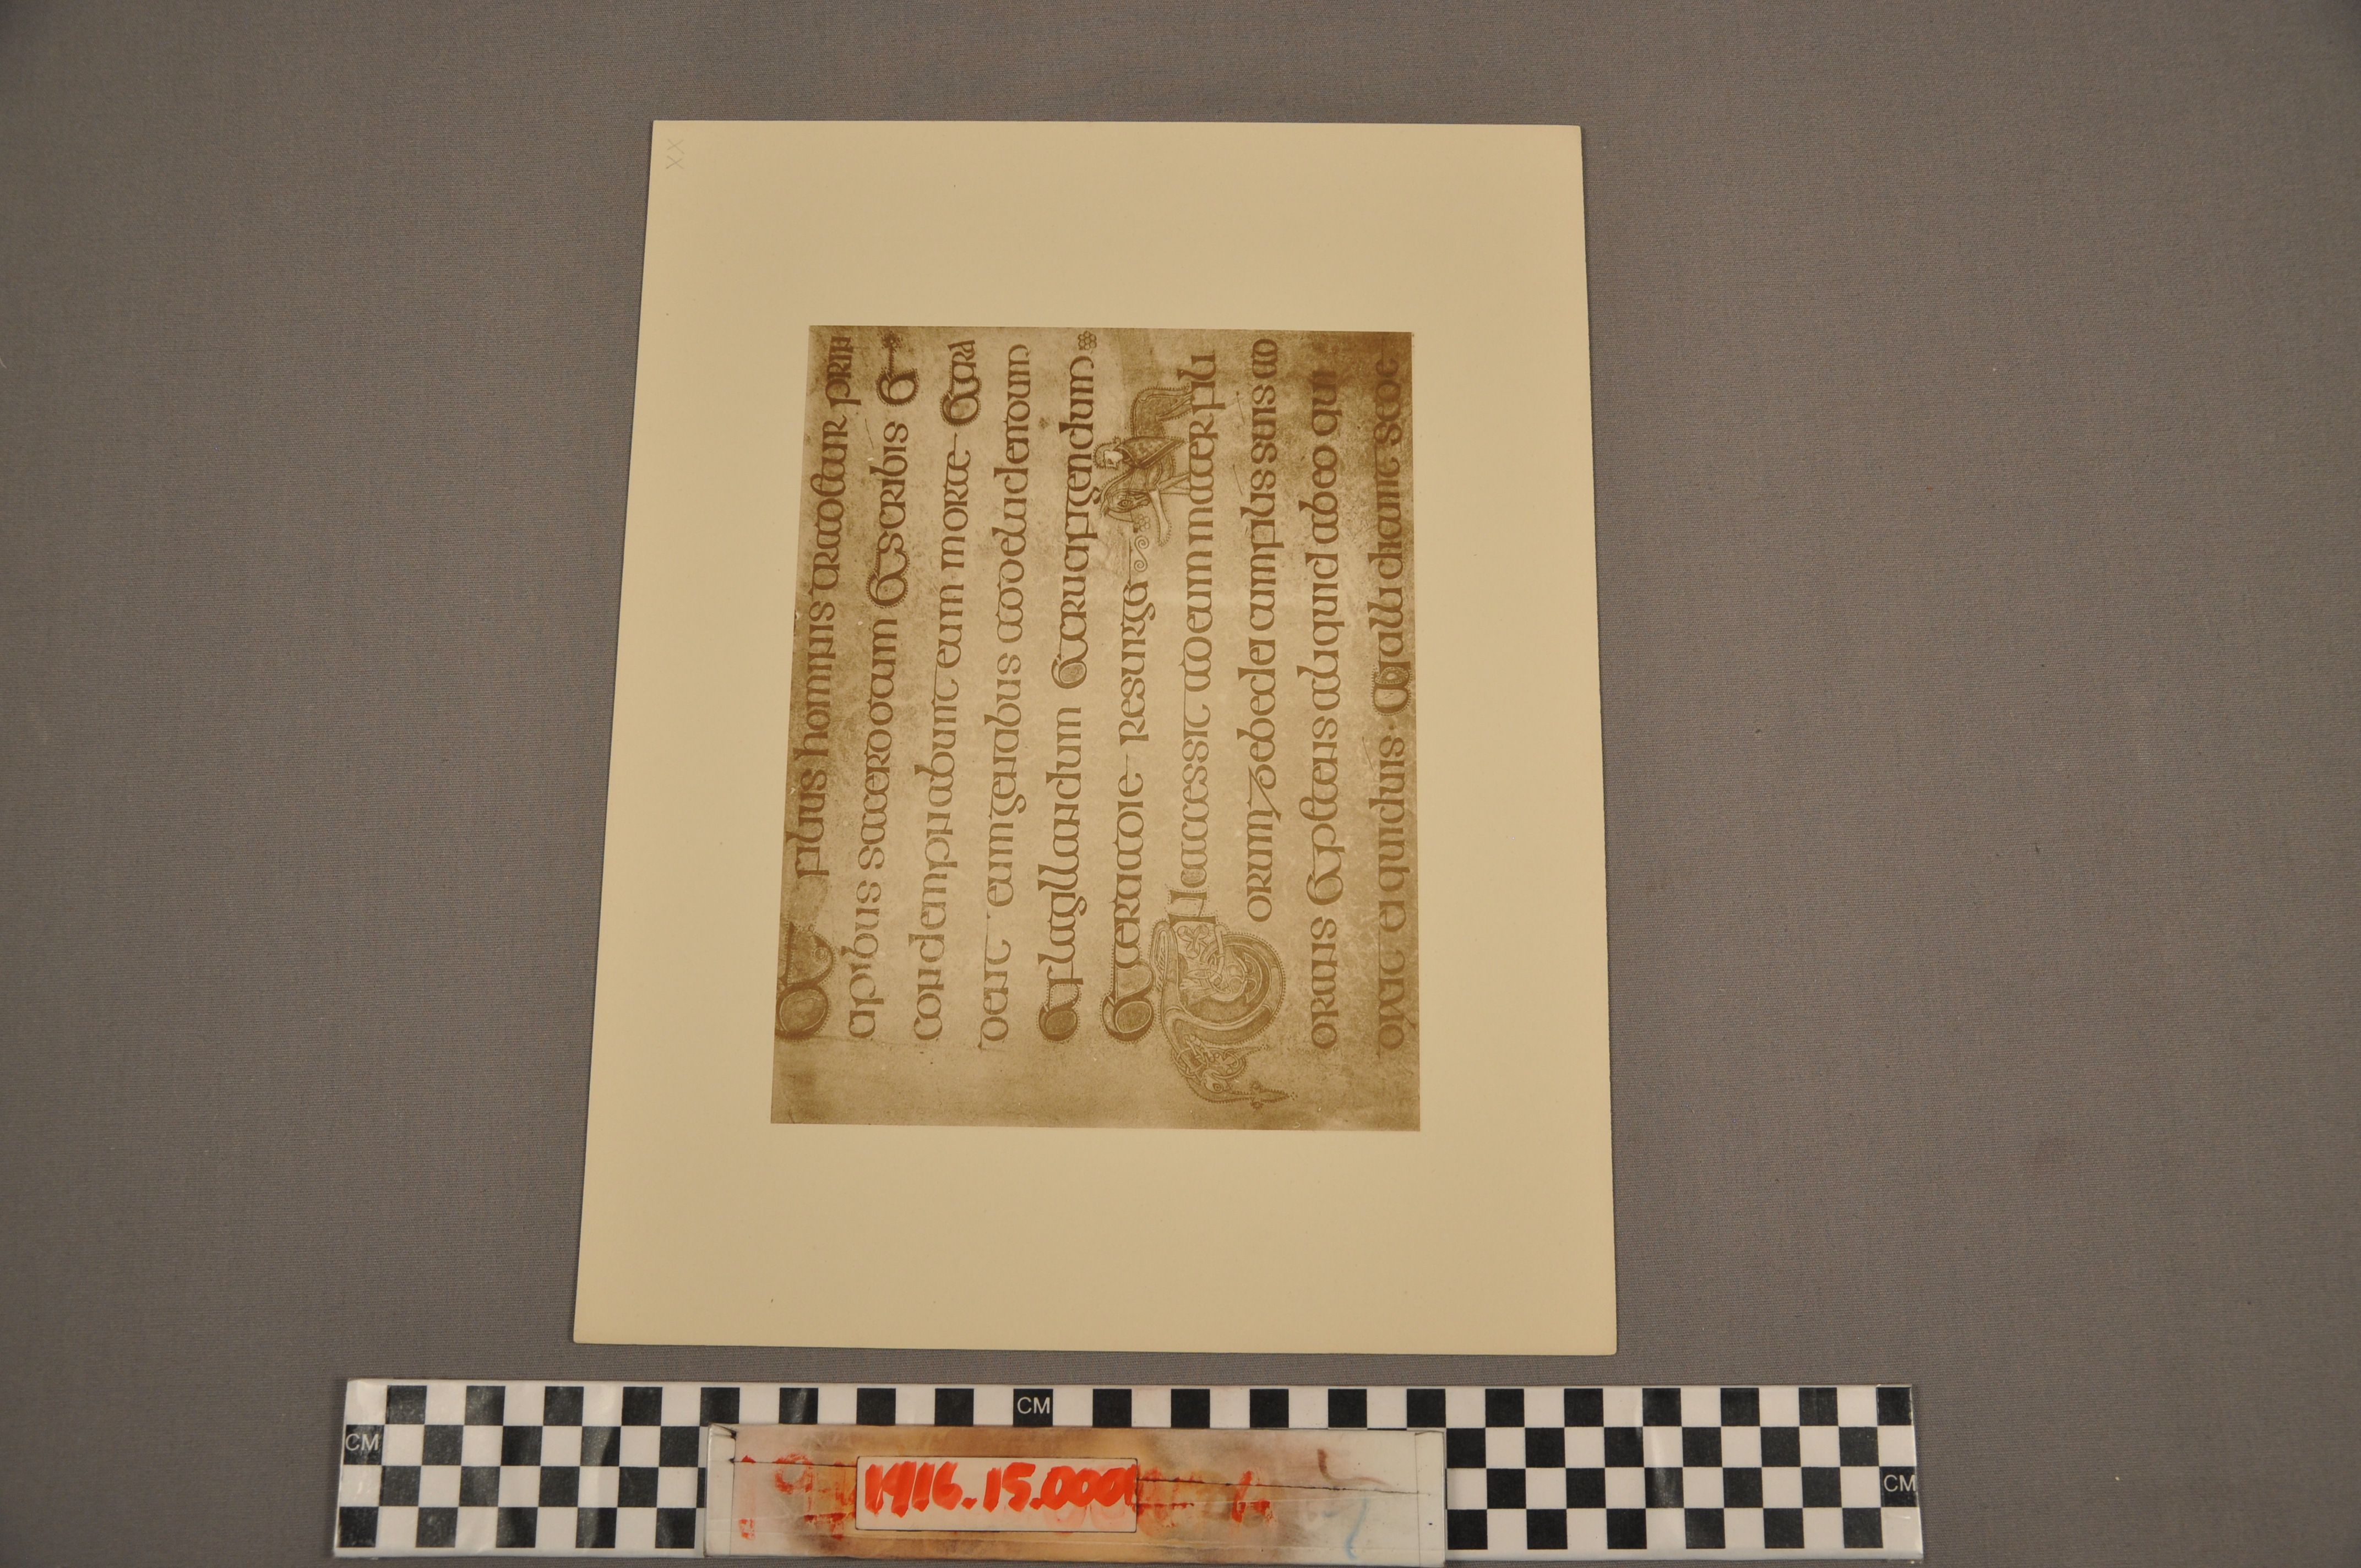 XX
Et filius hominis tradetur prin
cipibus sacerdotum Et scribis Et
condempnabunt eum morte Et tra
dent eum gentibus ad deludendum
Et flagillandum Et crucifigendum
Et tertia die resurget
Tunc accessit ad eum mater fili
orum zebedei cum filiis suis ad
orans Et petens aliquid ab eo qui
dixit ei quid uis · Ait illi
CM
CM
CM
1916.15.0001